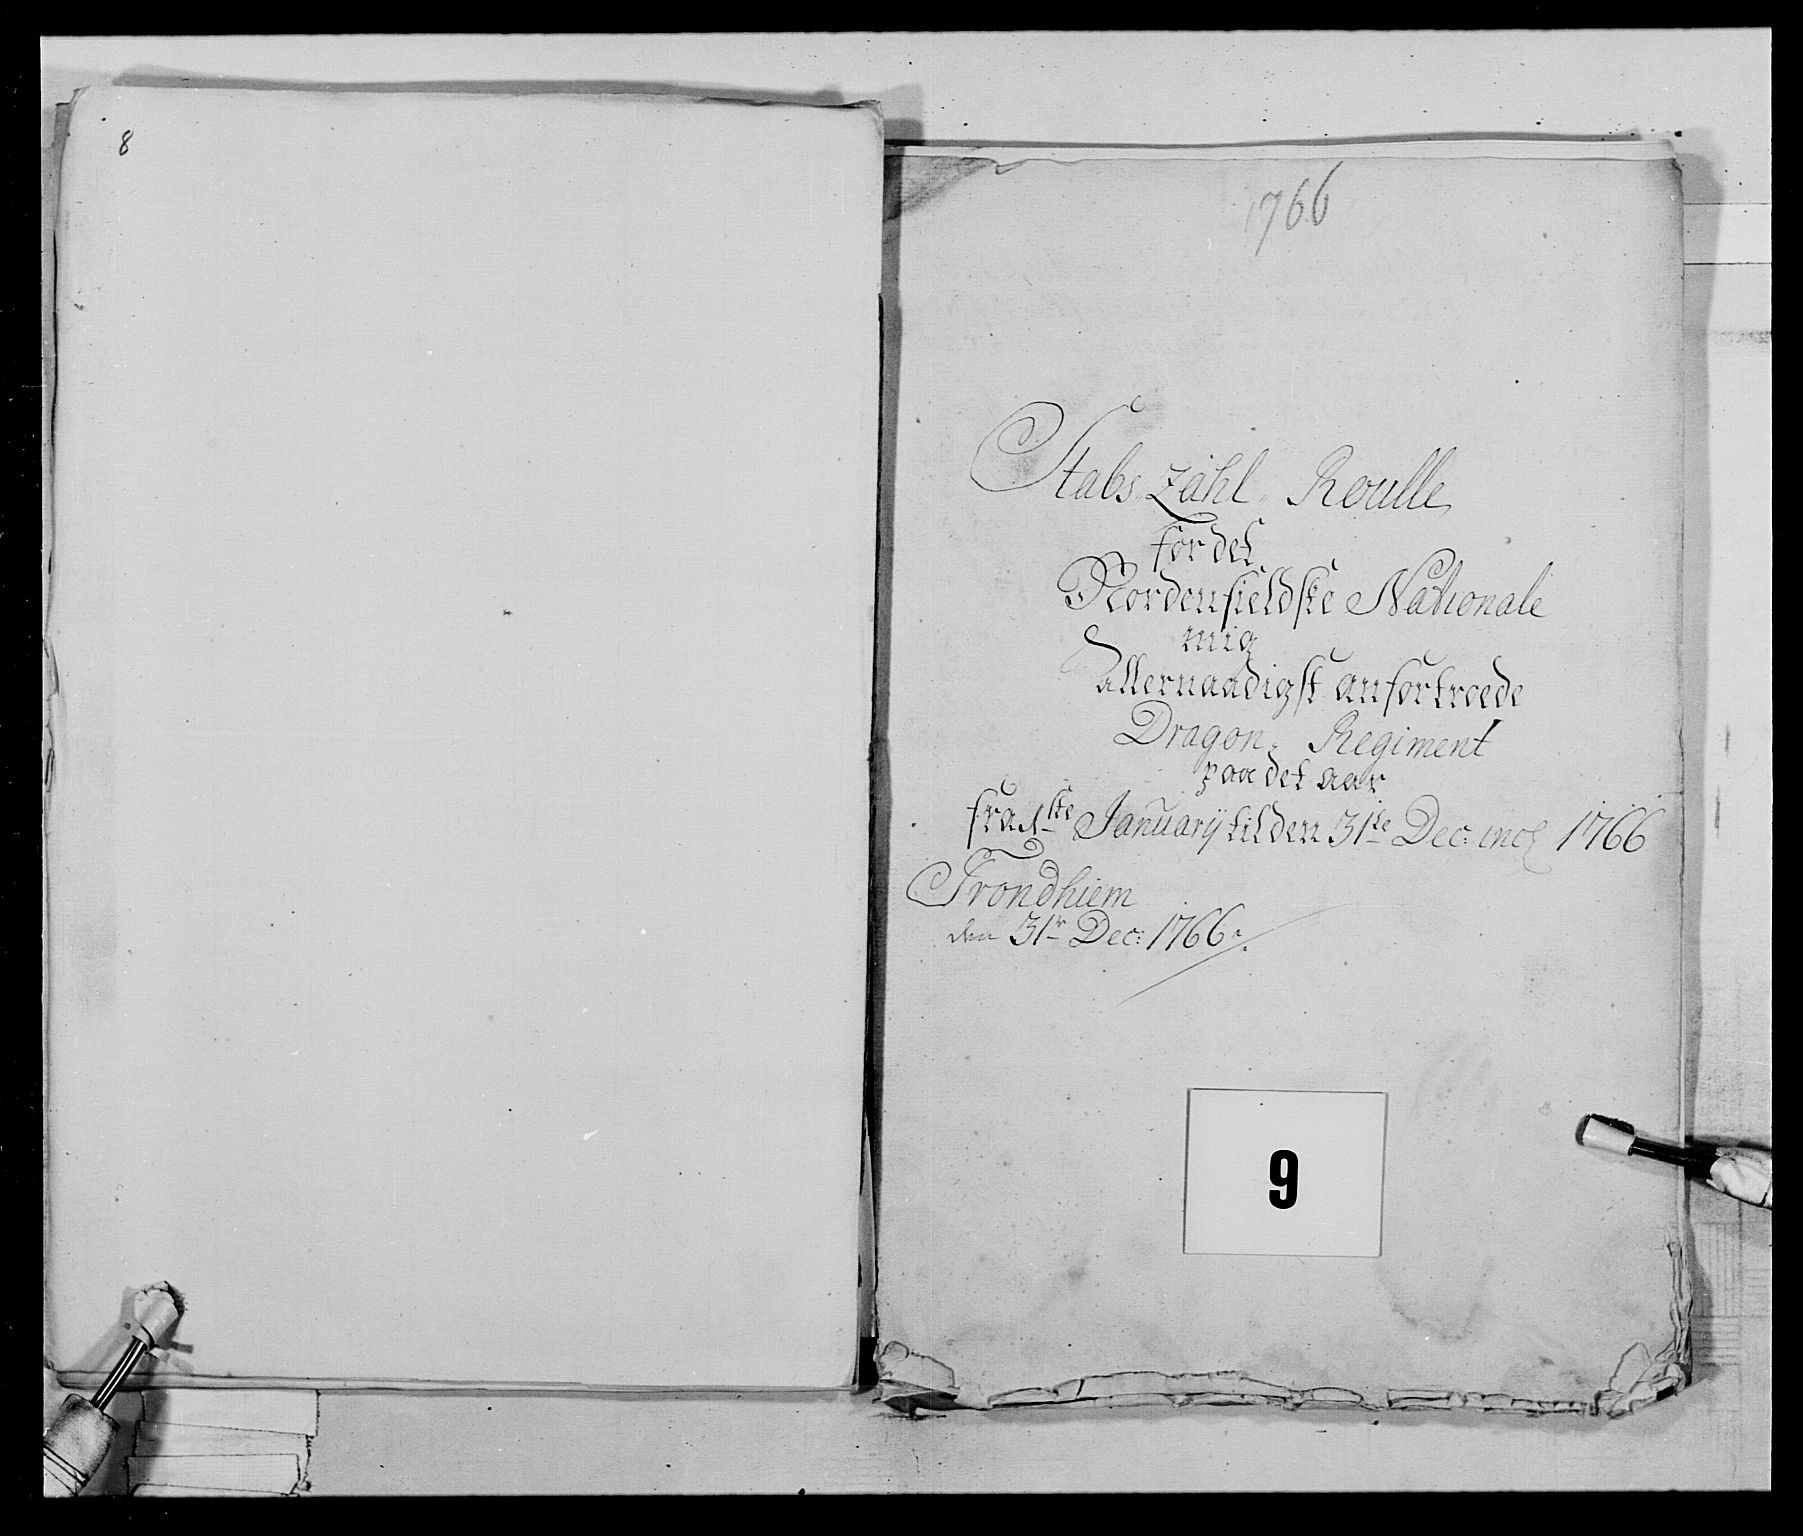 8
1766
Stabs Zahl Roulle
for det
Nordenfieldske Nationale
mig
allernaadigst anfortroede
Dragon Regiment
paa det aar
fra 1ste January til den 31te Dec: incl 1766
Trondhiem
den 31te Dec: 1766.
9